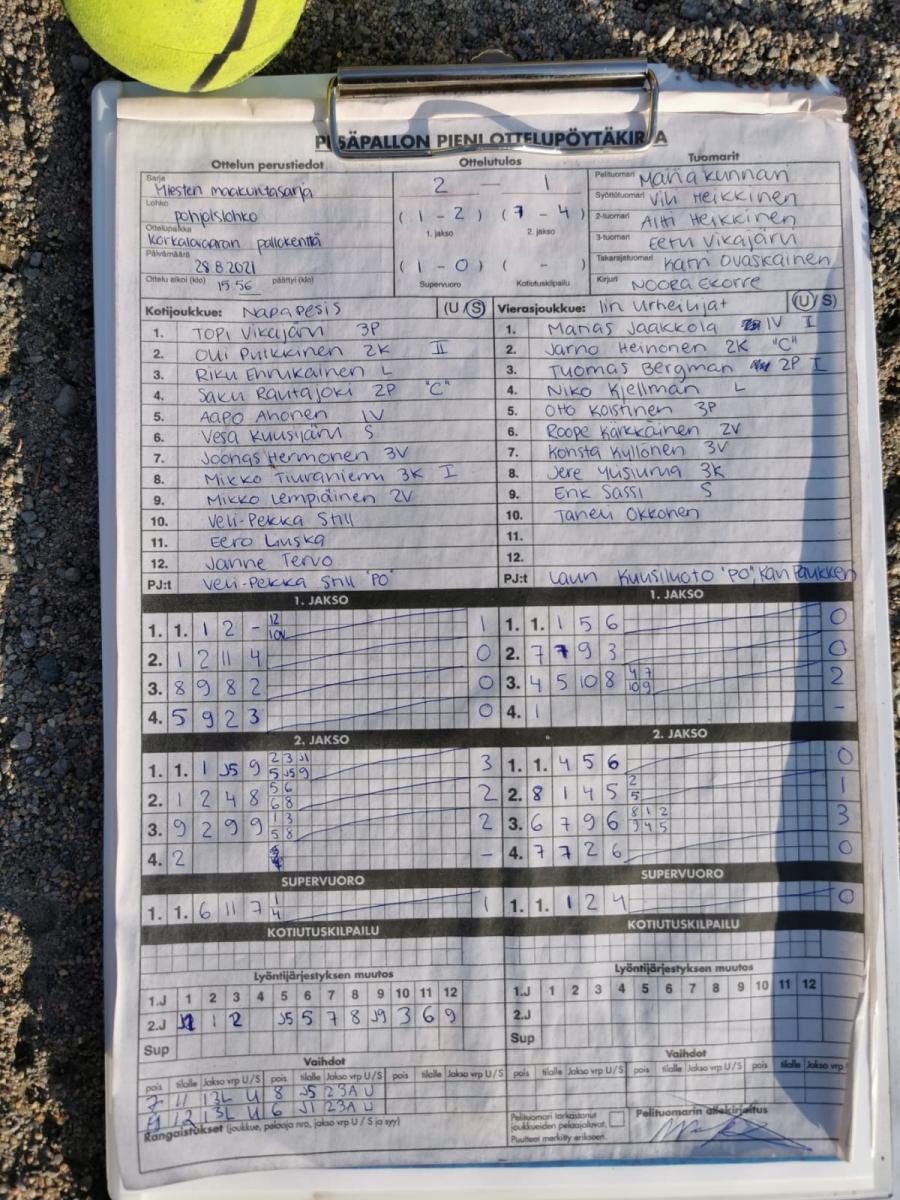 PESÄPALLON PIENI OTTELUPÖYTÄKIRJA
Ottelun perustiedot
Sarja
Miesten maakuntasarja
Lohko
pohjoislohko
Ottelupaikka
Korkalovaaran pallokenttä
Päivämäärä
28.8.2021
Ottelu alkoi (klo) 15.56 päättyi (klo)
Ottelutulos
2 — 1
( 1 - 2 ) ( 7 - 4 )
1. jakso 2. jakso
( 1 - 0 ) ( - )
Supervuoro Kotiutuskilpailu
Tuomarit
Pelituomari Maria Kunnari
Syöttötuomari Vili Heikkinen
2-tuomari Altti Heikkinen
3-tuomari Eetu Vikajärvi
Takarajatuomari Katri Ovaskainen
Kirjuri Noora Ekorre
Kotijoukkue: NAPAPESIS (U/S)
1. Topi Vikajärvi 3P
2. Olli Pulkkinen 2K II
3. Riku Ehnukainen L
4. Saku Rautajoki 2P "C"
5. Aapo Ahonen IV
6. Vesa Kuusijärvi S
7. Joonas Hermonen 3V
8. Mikko Tiuraniemi 3K I
9. Mikko Lempiäinen 2V
10. Veli-Pekka Still
11. Eero Liuska
12. Janne Tervo
PJ:t Veli-Pekka Still "PO"
Vierasjoukkue: Iin Urheilijat (U/S)
1. Manas Jaakkola IV I
2. Jarno Heinonen 2K "C"
3. Tuomas Bergman 2P I
4. Niko Kjellman L
5. Otto Koistinen 3P
6. Roope Karkkäinen 2V
7. Konsta Kyllönen 3V
8. Jere Ylisiurua 3K
9. Erik Sassi S
10. Taneli Okkonen
11.
12.
PJ:t Lauri Kuusiluoto "PO"
1. JAKSO
1. 1. 1 2 - 12 10V 1
2. 1 2 11 4 0
3. 8 9 8 2 0
4. 5 9 2 3 0
1. JAKSO
1. 1. 1 5 6 0
2. 7 7 9 3 0
3. 4 5 10 8 4 7 10 9 2
4. 1 -
2. JAKSO
1. 1. 1 J5 9 2 3 J1 5 J5 9 3
2. 1 2 4 8 5 6 6 8 2
3. 9 2 9 9 1 3 5 8 2
4. 2 -
2. JAKSO
1. 1. 4 5 6 0
2. 8 1 4 5 2 5 1
3. 6 7 9 6 8 1 2 9 4 5 3
4. 7 7 2 6 0
SUPERVUORO
1. 1. 6 11 7 1 4 1
SUPERVUORO
1. 1. 1 2 4 0
KOTIUTUSKILPAILU
KOTIUTUSKILPAILU
Lyöntijärjestyksen muutos
1.J 1 2 3 4 5 6 7 8 9 10 11 12
2.J 1 2 J5 5 7 8 J9 3 6 9
Sup
Lyöntijärjestyksen muutos
1.J 1 2 3 4 5 6 7 8 9 10 11 12
2.J
Sup
Vaihdot
pois tilalle Jakso vrp U/S pois tilalle Jakso vrp U/S pois tilalle Jakso vrp U/S
7 11 13L U 8 J5 23A U
12 13L U 6 J1 23A U
Vaihdot
pois tilalle Jakso vrp U/S pois tilalle Jakso vrp U/S pois tilalle Jakso vrp U/S
Rangaistukset (joukkue, pelaaja nro, jakso vrp U / S ja syy)
Pelituomari tarkastanut
joukkueiden pelaajaluvat.
Puutteet merkitty erikseen.
Pelituomarin allekirjoitus